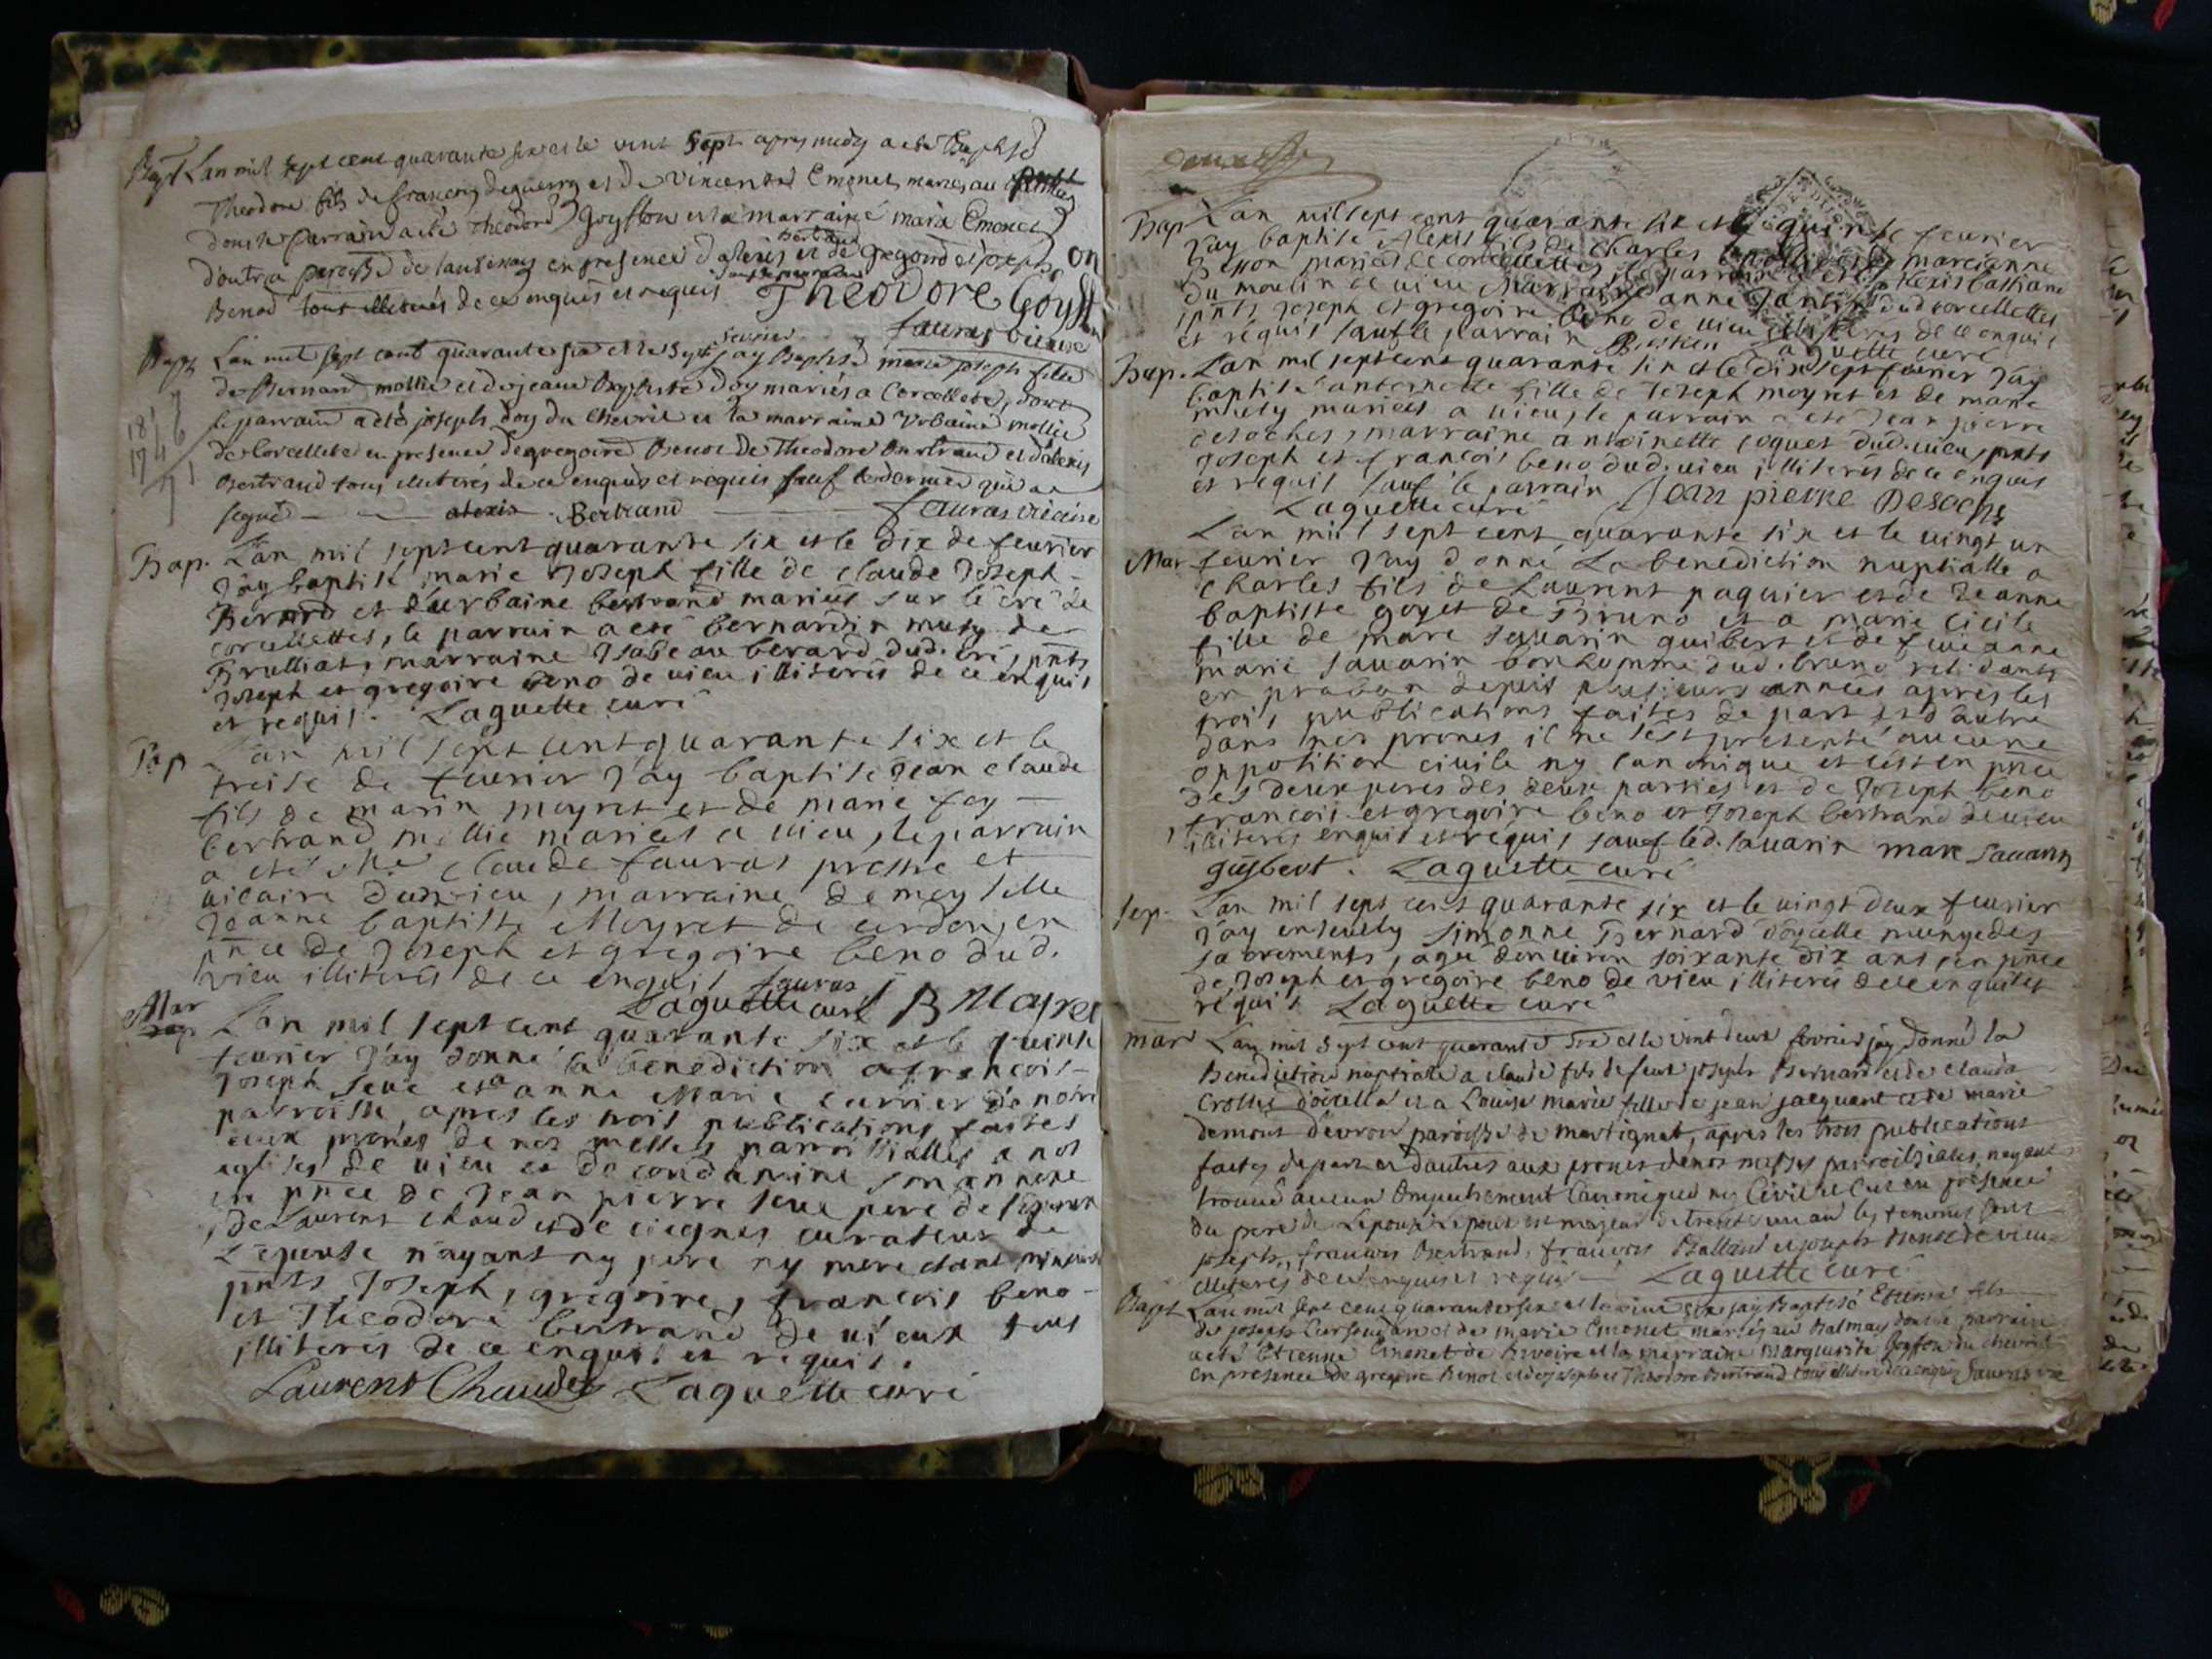 Bapt Lan mil sept cent quarante six et le vint sept apres midy a eté Baptisé
Theodore fils de francois deguerry et de Vincente Emonet mariés au
dont le parrain a eté Theodore Goyffon et la marraine maria Emonet
d'outre paroisse de en presence d'alexis Bertrand et de gregoire et joseph
Benod tous illiterés de ce enquis et requis sauf le parrain Theodore Goyffon
fauras vicaire
Bapt Lan mil sept cent quarante six et le sept fevrier jay Baptisé marie joseph fille
de Bernard mollie et de jeanne Baptiste doy mariés a Corcellete, dont
le parrain a eté joseph doy du Chevril et la marraine Urbaine mollie
de Corcellete en presence de gregoire Benod de Theodore Bertrand et d'alexis
Bertrand tous illiterés de ce enquis et requis sauf le dernier qui a
signé alexis Bertrand fauras vicaire
1817
1746
71
Bap. L'an mil sept cent quarante six et le dix de feurier
J'ay baptisé marie Joseph fille de claude Joseph
Berard et d'urbaine bertrand mariés sur le cré de
corcellettes, le parrain a eté bernardin musy de
Brulliat, marraine Isabeau berard dud. cré, pnts
Joseph et gregoire beno de uieu illiterés de ce enquis
et requis. Laguette curé
Bap L'an mil sept cent quarante six et le
treise de feurier J'ay baptisé Jean claude
fils de marin moyret et de marie foy
bertrand mollie mariés a uieu, le parrain
a eté Mre claude fauras prestre et
uicaire dud. uieu, marraine demoyselle
Jeanne baptiste Moyret de cerdon, en
pnce de Joseph et gregoire beno dud.
vieu illiterés de ce enquis fauras
Laguette curé J B Mayret
Mar L'an mil sept cent quarante six et le quinse
feurier J'ay donné la benediction a francois
Joseph seue et a anne Marie currier de notre
parroisse, apres les trois publications faites
aux prones de nos messes parroissialles a nos
eglises de uieu et de condamine son annexe
en pnce de Jean pierre seue pere de l'epoux
de Laurent chaud et de ciegnes curateur de
L'epouse n'ayant ny pere ny mere
pnts Joseph, gregoire, francois beno
et Theodore bertrand de uieux tous
illiterés de ce enquis et requis.
Laurent Chaudet Laguette curé
Bap L'an mil sept cent quarante six et le quinse feurier
J'ay baptisé Alexis fils de Charles et de marcianne
Besson mariés de corcellettes le parrain a eté Alexis bastiane
du moulin de uieu Marraine anne dud corcellettes
pnts Joseph et gregoire beno de uieu illiterés de ce enquis
et requis sauf le parrain Laguette curé
Bap. L'an mil sept cent quarante six et le dix sept feurier J'ay
baptisé antoinette fille de Joseph moyret et de marie
musy mariés a uieu, le parrain a eté Jean pierre
desoches, marraine antoinette coquet dud. uieu, pnts
Joseph et francois beno dud. uieu illiterés de ce enquis
et requis sauf le parrain Jean pierre Desoche
Laguette curé
L'an mil sept cent quarante six et le uingt un
Mar feurier J'ay donné La benediction nuptialle a
charles fils de Laurent paquier et de Jeanne
baptiste goyet de Bruno et a marie cicile
fille de marc sauarin guibert et de feue anne
marie sauarin bonhomme dud. bruno residants
en depuis plusieurs années apres les
trois publications faites de part et d'autre
dans nos prones il ne s'est presenté aucune
opposition ciuile ny canonique et c'est en pnce
des deux peres des deux parties et de Joseph beno
francois et gregoire beno et Joseph bertrand de uieu
illiterés enquis et requis sauf led. sauarin marc sauarin
guibert. Laguette curé
sep. L'an mil sept cent quarante six et le uingt deux feurier
J'ay enseuely simonne Bernard d'oyselle munye des
sacrements, agée d'enuiron soixante dix ans, en pnce
de Joseph et gregoire beno de vieu, illiterés de ce enquis et
requis Laguette curé
mar Lan mil sept cent quarante six et le vint deux fevrier jay donné la
Benediction nuptiale a claude fils de feu joseph Bernard et de claude
crollie d'oisella et a Louise marie fille de jean jacquent et de marie
demont d'evron paroisse de martignat, apres les trois publications
faites de part et d'autres aux prones de nos messes parroissiales, nayant
trouvé aucun Empechement Canonique ny Civil et c'est en presence
du pere de Lepouse Lepoux est majeur de trente un an les temoins sont
joseph, francois Bertrand, francois Balland et joseph Benod de vieu
illiterés de ce enquis et requis Laguette curé
Bapt Lan mil sept cent quarante six et le vint six jay Baptisé Etienne fils
de joseph et de marie Emonet mariés au Balmay dont le parrain
a eté Etienne Emonet de et la marraine marguerite Goyffon du chevril
en presence de gregoire Benod et de joseph et Theodore Bertrand tous illiterés de ce enquis fauras vic